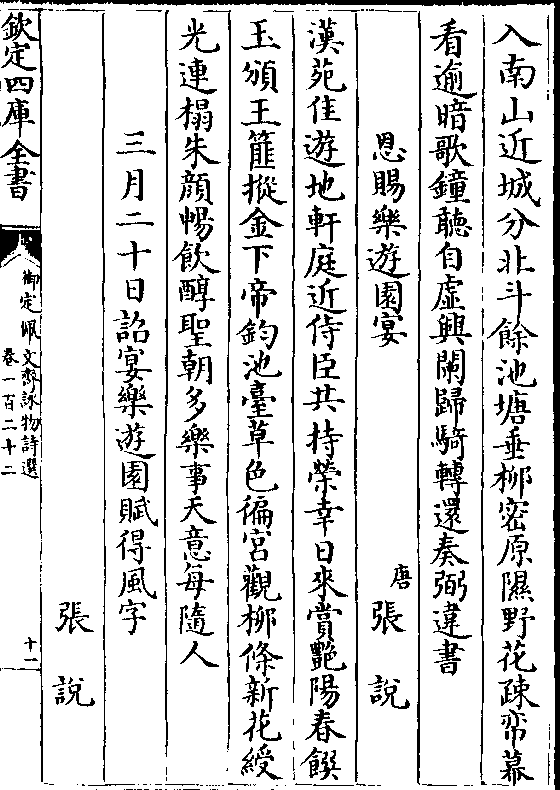 入南山近城分北斗餘池塘垂柳密原隰野花疎帟幕
看逾暗歌鐘聽自虛興闌歸騎轉還奏弼違書
恩賜樂遊園宴
唐 張說
漢苑佳遊地軒庭近侍臣共持榮幸日來賞艷陽春饌
玉頒王篚摐金下帝鈞池臺草色徧宮觀柳條新花綬
光連榻朱顔暢飲醇聖朝多樂事天意每隨人
三月二十日詔宴樂遊園賦得風字
張說
欽定四庫全書
御定佩文齋詠物詩選
卷一百二十二
十一